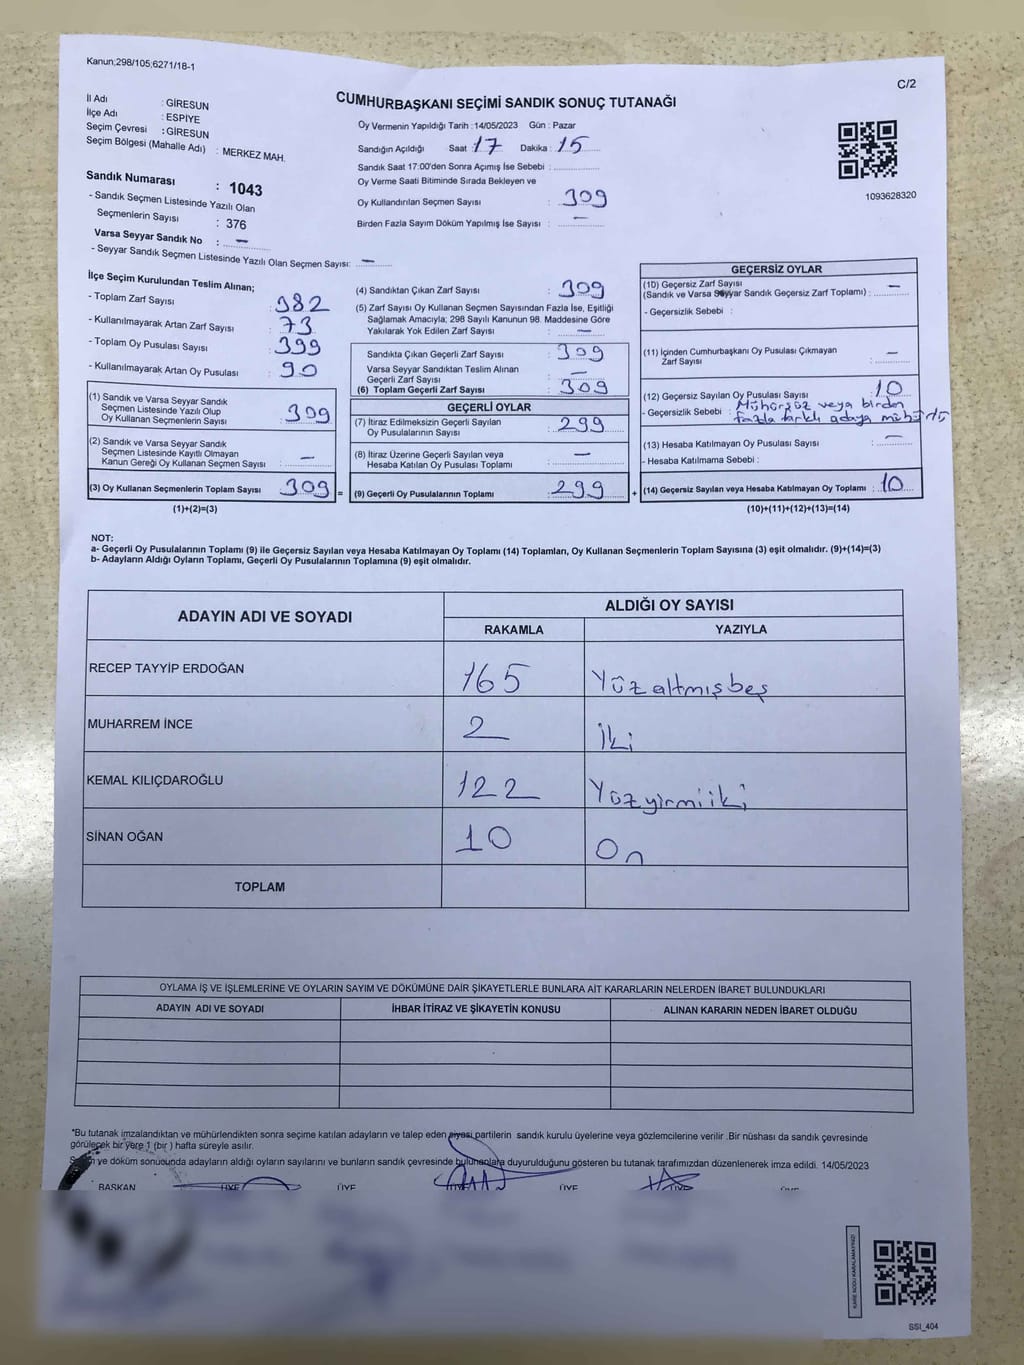 Kanun;298/105;6271/18-1
C/2
CUMHURBAŞKANI SEÇİMİ SANDIK SONUÇ TUTANAĞI
İl Adı : GİRESUN
İlçe Adı : ESPİYE
Seçim Çevresi : GİRESUN
Seçim Bölgesi (Mahalle Adı) : MERKEZ MAH.
Sandık Numarası : 1043
- Sandık Seçmen Listesinde Yazılı Olan
Seçmenlerin Sayısı : 376
Varsa Seyyar Sandık No : —
- Seyyar Sandık Seçmen Listesinde Yazılı Olan Seçmen Sayısı: —
Oy Vermenin Yapıldığı Tarih : 14/05/2023 Gün : Pazar
Sandığın Açıldığı Saat : 17 Dakika : 15
Sandık Saat 17:00'den Sonra Açımış İse Sebebi :
Oy Verme Saati Bitiminde Sırada Bekleyen ve
Oy Kullandırılan Seçmen Sayısı : 309
Birden Fazla Sayım Döküm Yapılmış İse Sayısı : —
1093628320
İlçe Seçim Kurulundan Teslim Alınan;
- Toplam Zarf Sayısı : 382
- Kullanılmayarak Artan Zarf Sayısı : 73
- Toplam Oy Pusulası Sayısı : 399
- Kullanılmayarak Artan Oy Pusulası : 90
(1) Sandık ve Varsa Seyyar Sandık
Seçmen Listesinde Yazılı Olup
Oy Kullanan Seçmenlerin Sayısı : 309
(2) Sandık ve Varsa Seyyar Sandık
Seçmen Listesinde Kayıtlı Olmayan
Kanun Gereği Oy Kullanan Seçmen Sayısı : —
(3) Oy Kullanan Seçmenlerin Toplam Sayısı : 309
(1)+(2)=(3)
(4) Sandıktan Çıkan Zarf Sayısı : 309
(5) Zarf Sayısı Oy Kullanan Seçmen Sayısından Fazla İse, Eşitliği
Sağlamak Amacıyla; 298 Sayılı Kanunun 98. Maddesine Göre
Yakılarak Yok Edilen Zarf Sayısı : —
Sandıkta Çıkan Geçerli Zarf Sayısı : 309
Varsa Seyyar Sandıktan Teslim Alınan
Geçerli Zarf Sayısı : —
(6) Toplam Geçerli Zarf Sayısı : 309
GEÇERLİ OYLAR
(7) İtiraz Edilmeksizin Geçerli Sayılan
Oy Pusulalarının Sayısı : 299
(8) İtiraz Üzerine Geçerli Sayılan veya
Hesaba Katılan Oy Pusulası Toplamı : —
= (9) Geçerli Oy Pusulalarının Toplamı : 299
GEÇERSİZ OYLAR
(10) Geçersiz Zarf Sayısı
(Sandık ve Varsa Seyyar Sandık Geçersiz Zarf Toplamı) : —
- Geçersizlik Sebebi :
(11) İçinden Cumhurbaşkanı Oy Pusulası Çıkmayan
Zarf Sayısı : —
(12) Geçersiz Sayılan Oy Pusulası Sayısı : 10
- Geçersizlik Sebebi : Mühürsüz veya birden
fazla farklı adaya mühür
(13) Hesaba Katılmayan Oy Pusulası Sayısı : —
- Hesaba Katılmama Sebebi :
+ (14) Geçersiz Sayılan veya Hesaba Katılmayan Oy Toplamı : 10
(10)+(11)+(12)+(13)=(14)
NOT:
a- Geçerli Oy Pusulalarının Toplamı (9) ile Geçersiz Sayılan veya Hesaba Katılmayan Oy Toplamı (14) Toplamları, Oy Kullanan Seçmenlerin Toplam Sayısına (3) eşit olmalıdır. (9)+(14)=(3)
b- Adayların Aldığı Oyların Toplamı, Geçerli Oy Pusulalarının Toplamına (9) eşit olmalıdır.
ADAYIN ADI VE SOYADI
ALDIĞI OY SAYISI
RAKAMLA YAZIYLA
RECEP TAYYİP ERDOĞAN 165 Yüzaltmışbeş
MUHARREM İNCE 2 İki
KEMAL KILIÇDAROĞLU 122 Yüzyirmiiki
SİNAN OĞAN 10 On
TOPLAM
OYLAMA İŞ VE İŞLEMLERİNE VE OYLARIN SAYIM VE DÖKÜMÜNE DAİR ŞİKAYETLERLE BUNLARA AİT KARARLARIN NELERDEN İBARET BULUNDUKLARI
ADAYIN ADI VE SOYADI İHBAR İTİRAZ VE ŞİKAYETİN KONUSU ALINAN KARARIN NEDEN İBARET OLDUĞU
*Bu tutanak imzalandıktan ve mühürlendikten sonra seçime katılan adayların ve talep eden siyasi partilerin sandık kurulu üyelerine veya gözlemcilerine verilir .Bir nüshası da sandık çevresinde
görülecek bir yere 1 (bir ) hafta süreyle asılır.
ve döküm sonucunda adayların aldığı oyların sayılarını ve bunların sandık çevresinde bulunanlara duyurulduğunu gösteren bu tutanak tarafımızdan düzenlenerek imza edildi. 14/05/2023
BAŞKAN ÜYE ÜYE ÜYE ÜYE ÜYE
SSI_404